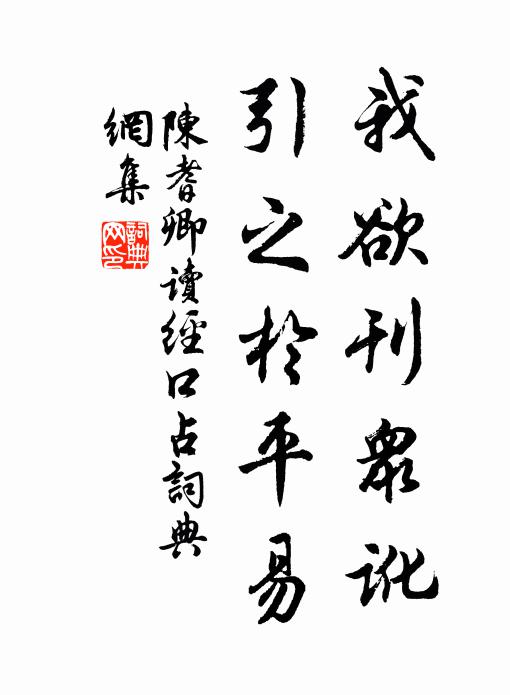 我欲刊衆訛
引之於平易
陳耆卿讀經口占詞典
網集
詞典網印